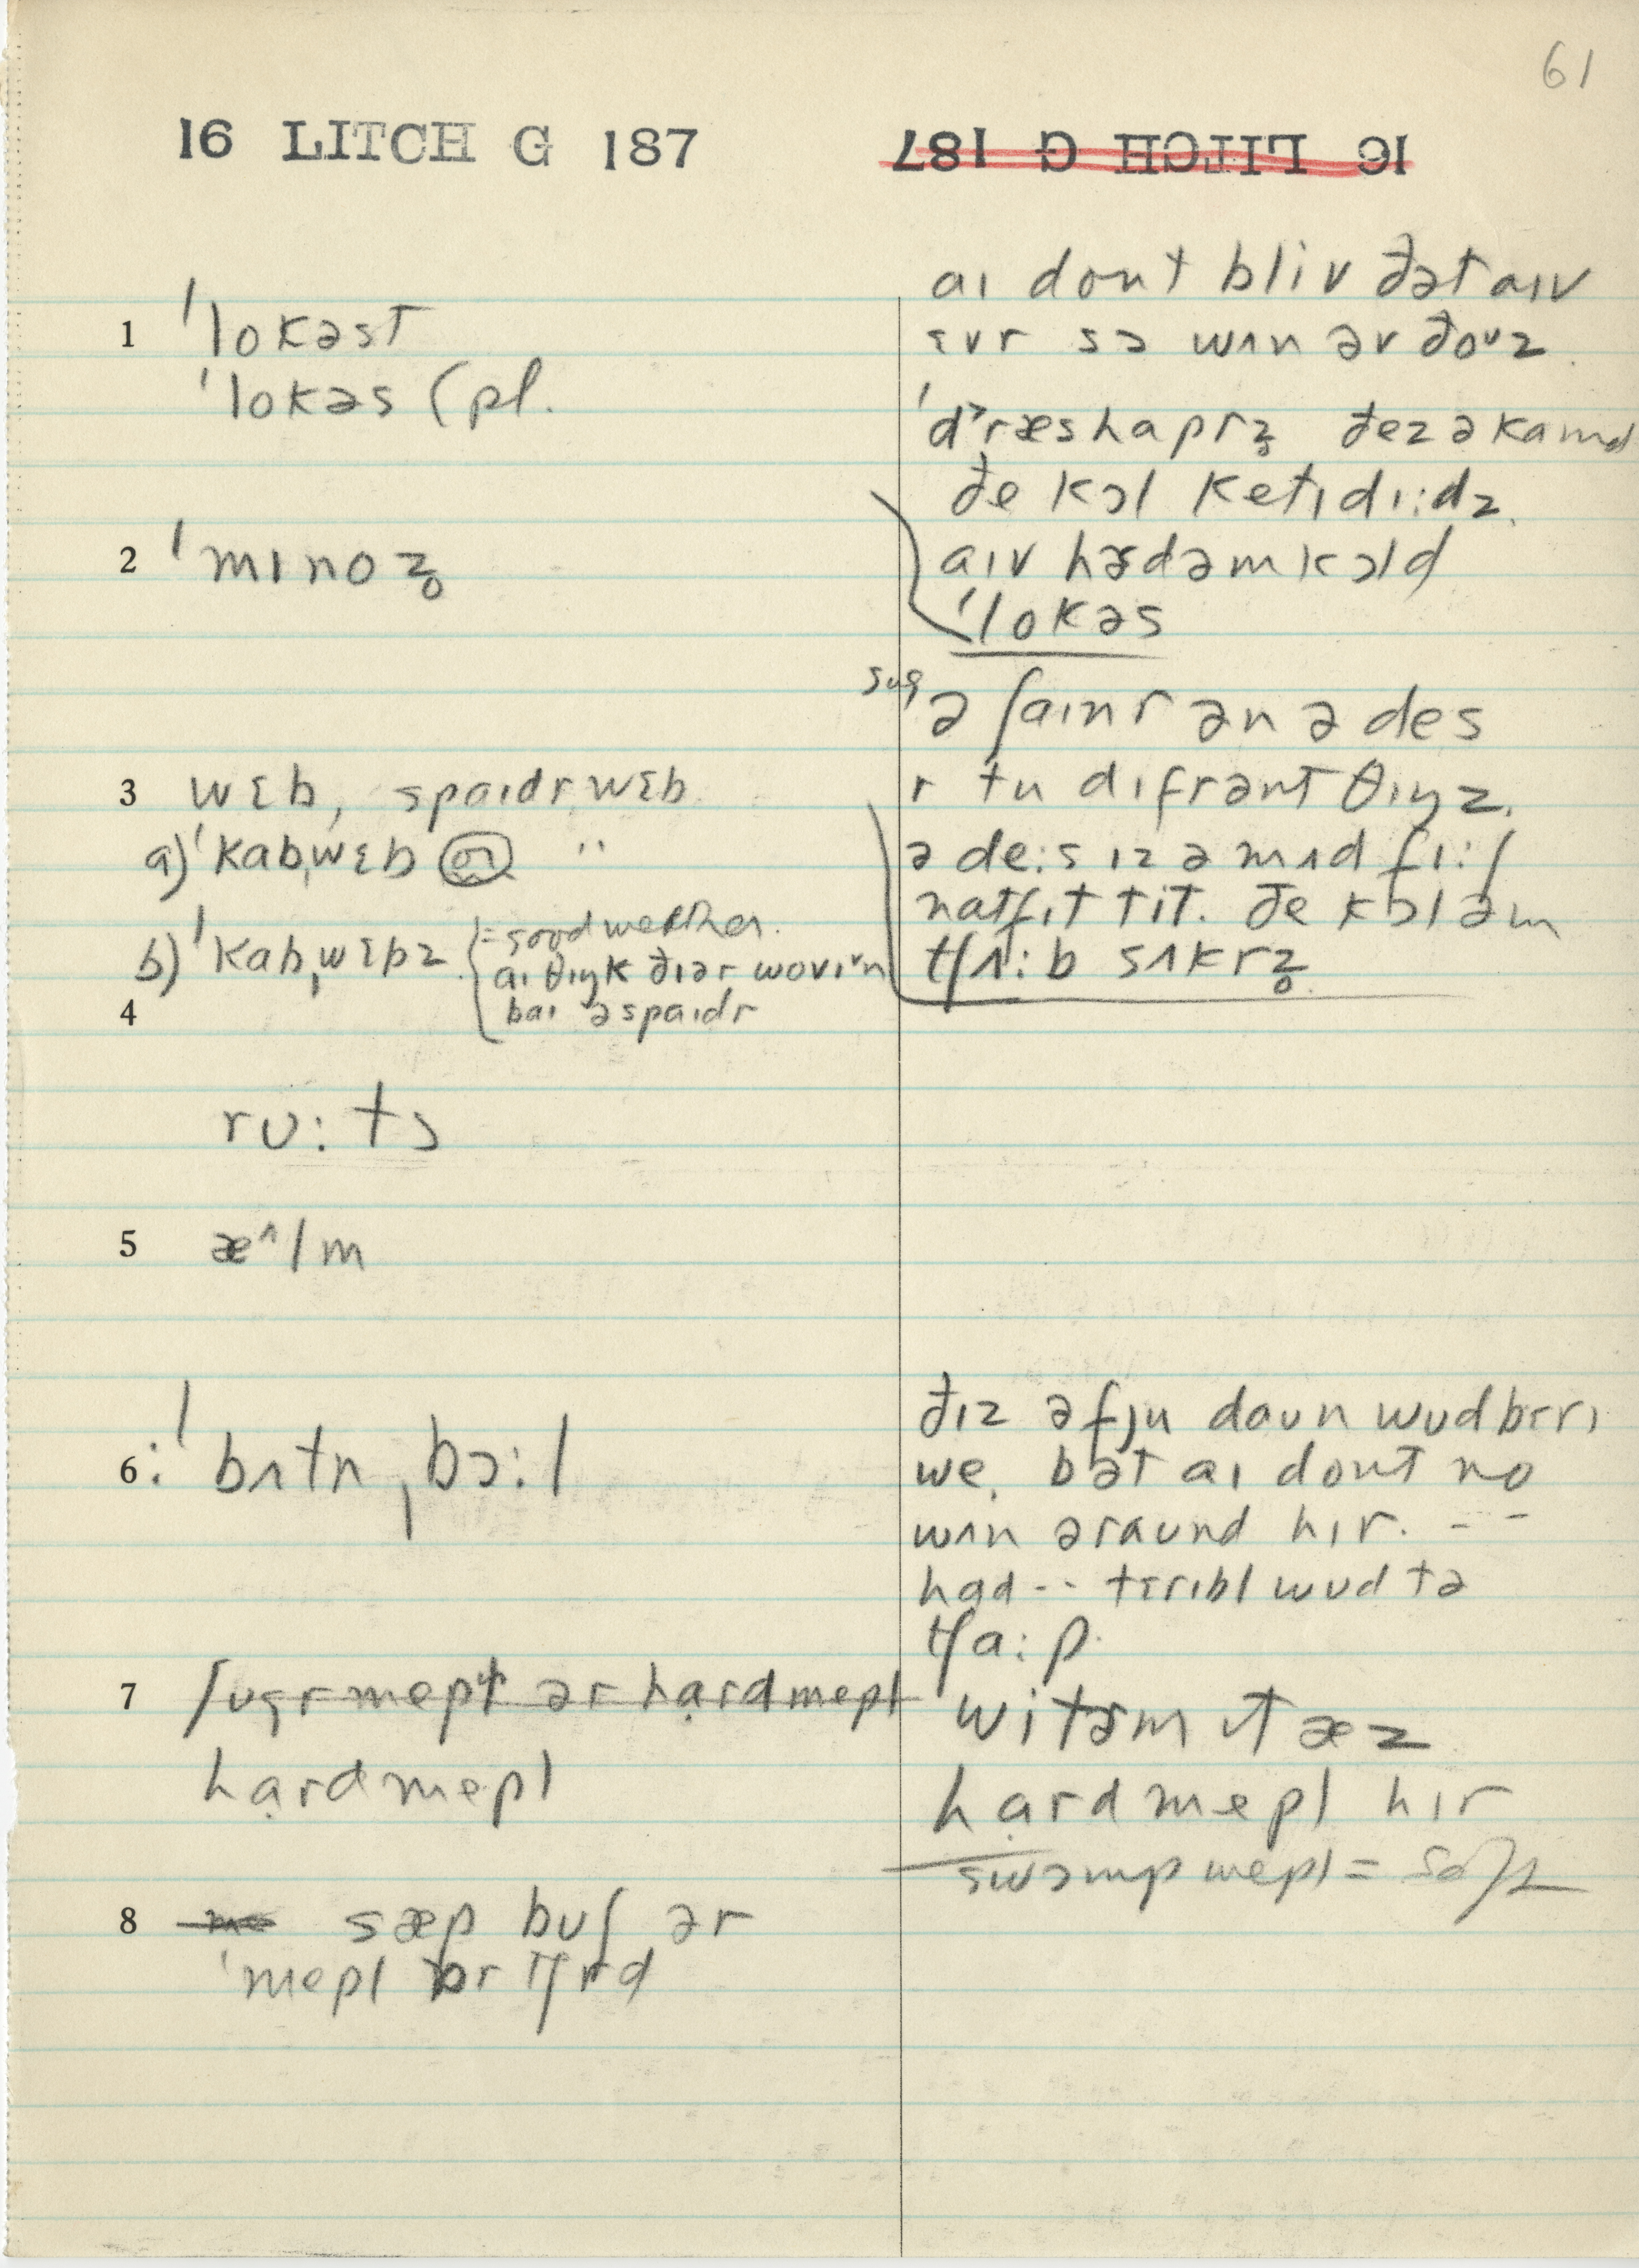 61
16 LITCH G 187
16 LITCH G 187
1 ˈlokəst
ˈlokəs (pl.
2 ˈmɪnoz̥
3 wɛb, spaɪdrwɛb
a) ˈkabˌwɛb or "
b) ˈkabˌwɛbz = good weather.
aɪ θɪŋk ðɪər wovɪᵛn
baɪ əspaɪdr
4
rʊ:ts
5 æ^lm
6: ˈbʌtnˌbɔ:l
7 ʃʊgrmepl ər hạrdmepl
hạrdmepl
8 sæp bʊʃ ər
ˈmepl ɔrtʃrd
aɪ dont bliv ðət aɪv
ɛvr sɔ wʌn əv ðoᵘz.
ˈdʳræshaprz̥ ðezəkamd
ðe kɔl ketɪdɪ:dz.
aɪv hɝdəmkɔld
ˈlokəs
sug ə ʃaɪnr ən ə des
r tu dɪfrənt θɪŋz.
ə de:s ɪz ə mʌd fɪ:ʃ
natfɪt tit. ðe kɔl əm
tʃʌ:b sʌkrz̥
ðɪz əfju daʊn wʊdbɛrɪ
we. bət aɪ dont no
wʌn əraʊnd hɪr. --
had -- tɛrɪbl wʊd tə
tʃa:p.
witɝm ɪt æz
hạrdmepl hɪr
swɔmpmepl = soft